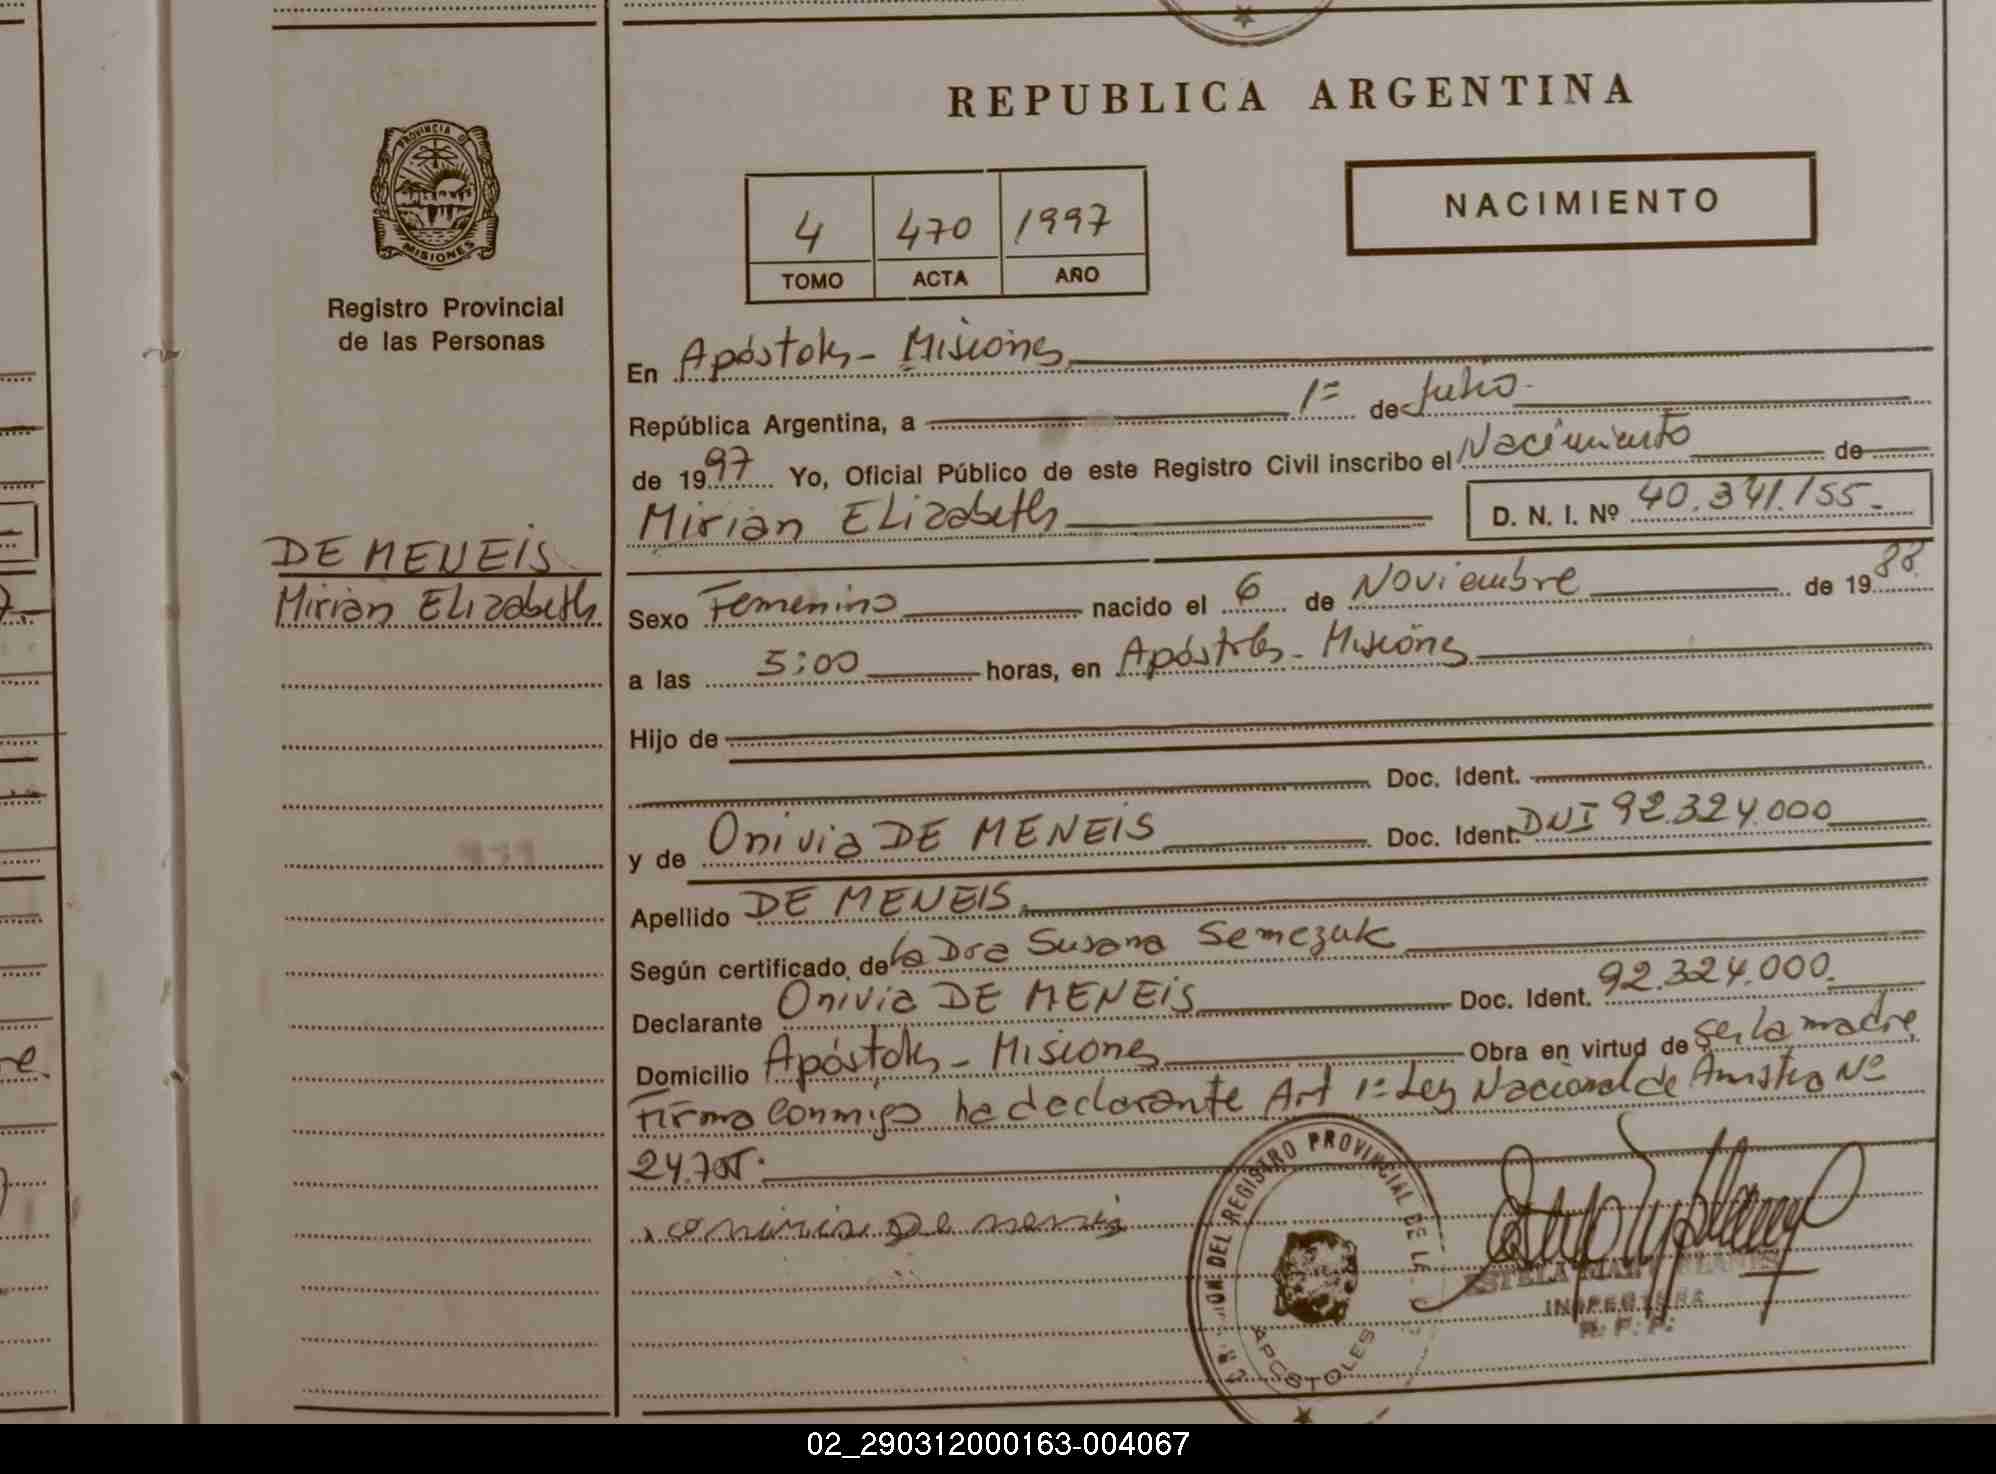 REPUBLICA ARGENTINA
PROVINCIA DE
MISIONES
Registro Provincial
de las Personas
4 470 1997
TOMO ACTA AÑO
NACIMIENTO
En Apóstoles - Misiones
República Argentina, a 1º de Julio.
de 1997 Yo, Oficial Público de este Registro Civil inscribo el Nacimiento de
Mirian ELizabeth D. N. I. Nº 40.341.155.-
DE MENEIS
Mirian ELizabeth
Sexo Femenino nacido el 6 de Noviembre de 1988
a las 5:00 horas, en Apóstoles - Misiones
Hijo de
Doc. Ident.
y de Onivia DE MENEIS Doc. Ident. DNI 92.324.000
Apellido DE MENEIS.
Según certificado de la Dra Susana Semezuk
Declarante Onivia DE MENEIS Doc. Ident. 92.324.000.
Domicilio Apóstoles - Misiones Obra en virtud de ser la madre
Firma conmigo la declarante Art 1º Ley Nacional de Amistia Nº
24.755.
DEL REGISTRO PROVINCIAL DE LA
APOSTOLES
ESTELA
INSPECTORA
R. P. P.
02_290312000163-004067